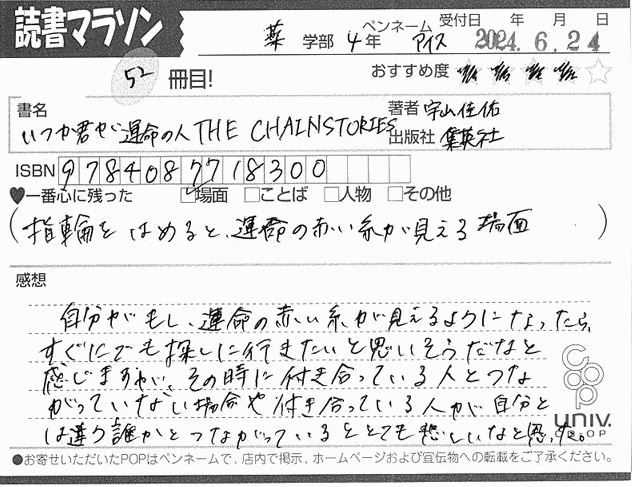 読書マラソン
薬 学部 4年 ペンネーム アイス 受付日 年 月 日 2024.6.24
52 冊目!
おすすめ度
書名 いつか君が運命の人 THE CHAINSTORIES
著者 宇山佳佑
出版社 集英社
ISBN 9784087718300
♥一番心に残った ☑場面 □ことば □人物 □その他
(指輪をはめると、運命の赤い糸が見える場面)
感想
自分がもし、運命の赤い糸が見えるようになったら、
すぐにでも探しに行きたいと思いそうだなと
感じますが、その時に付き合っている人とつな
がっていない場合や付き合っている人が自分と
は違う誰かとつながっているととても悲しいなと思います。
coop
univ.
CO-OP
●お寄せいただいたPOPはペンネームで、店内で掲示、ホームページおよび宣伝物への転載をご了承ください。